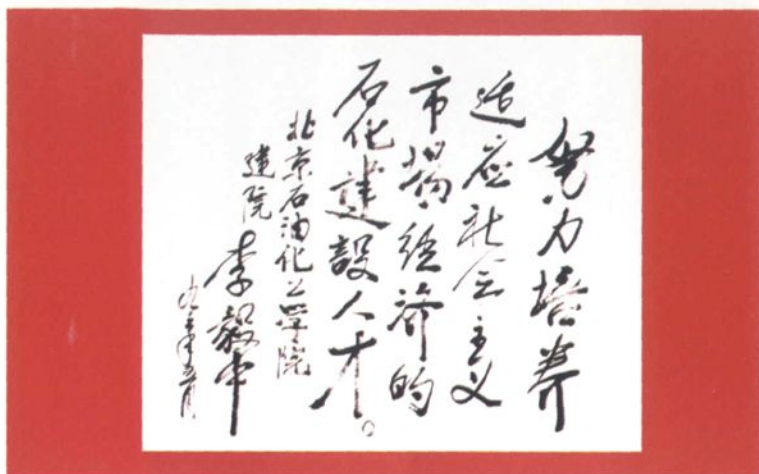 努力培养
适应社会主义
市场经济的
石化建设人才。
北京石油化工学院
建院
李毅中
九三年五月